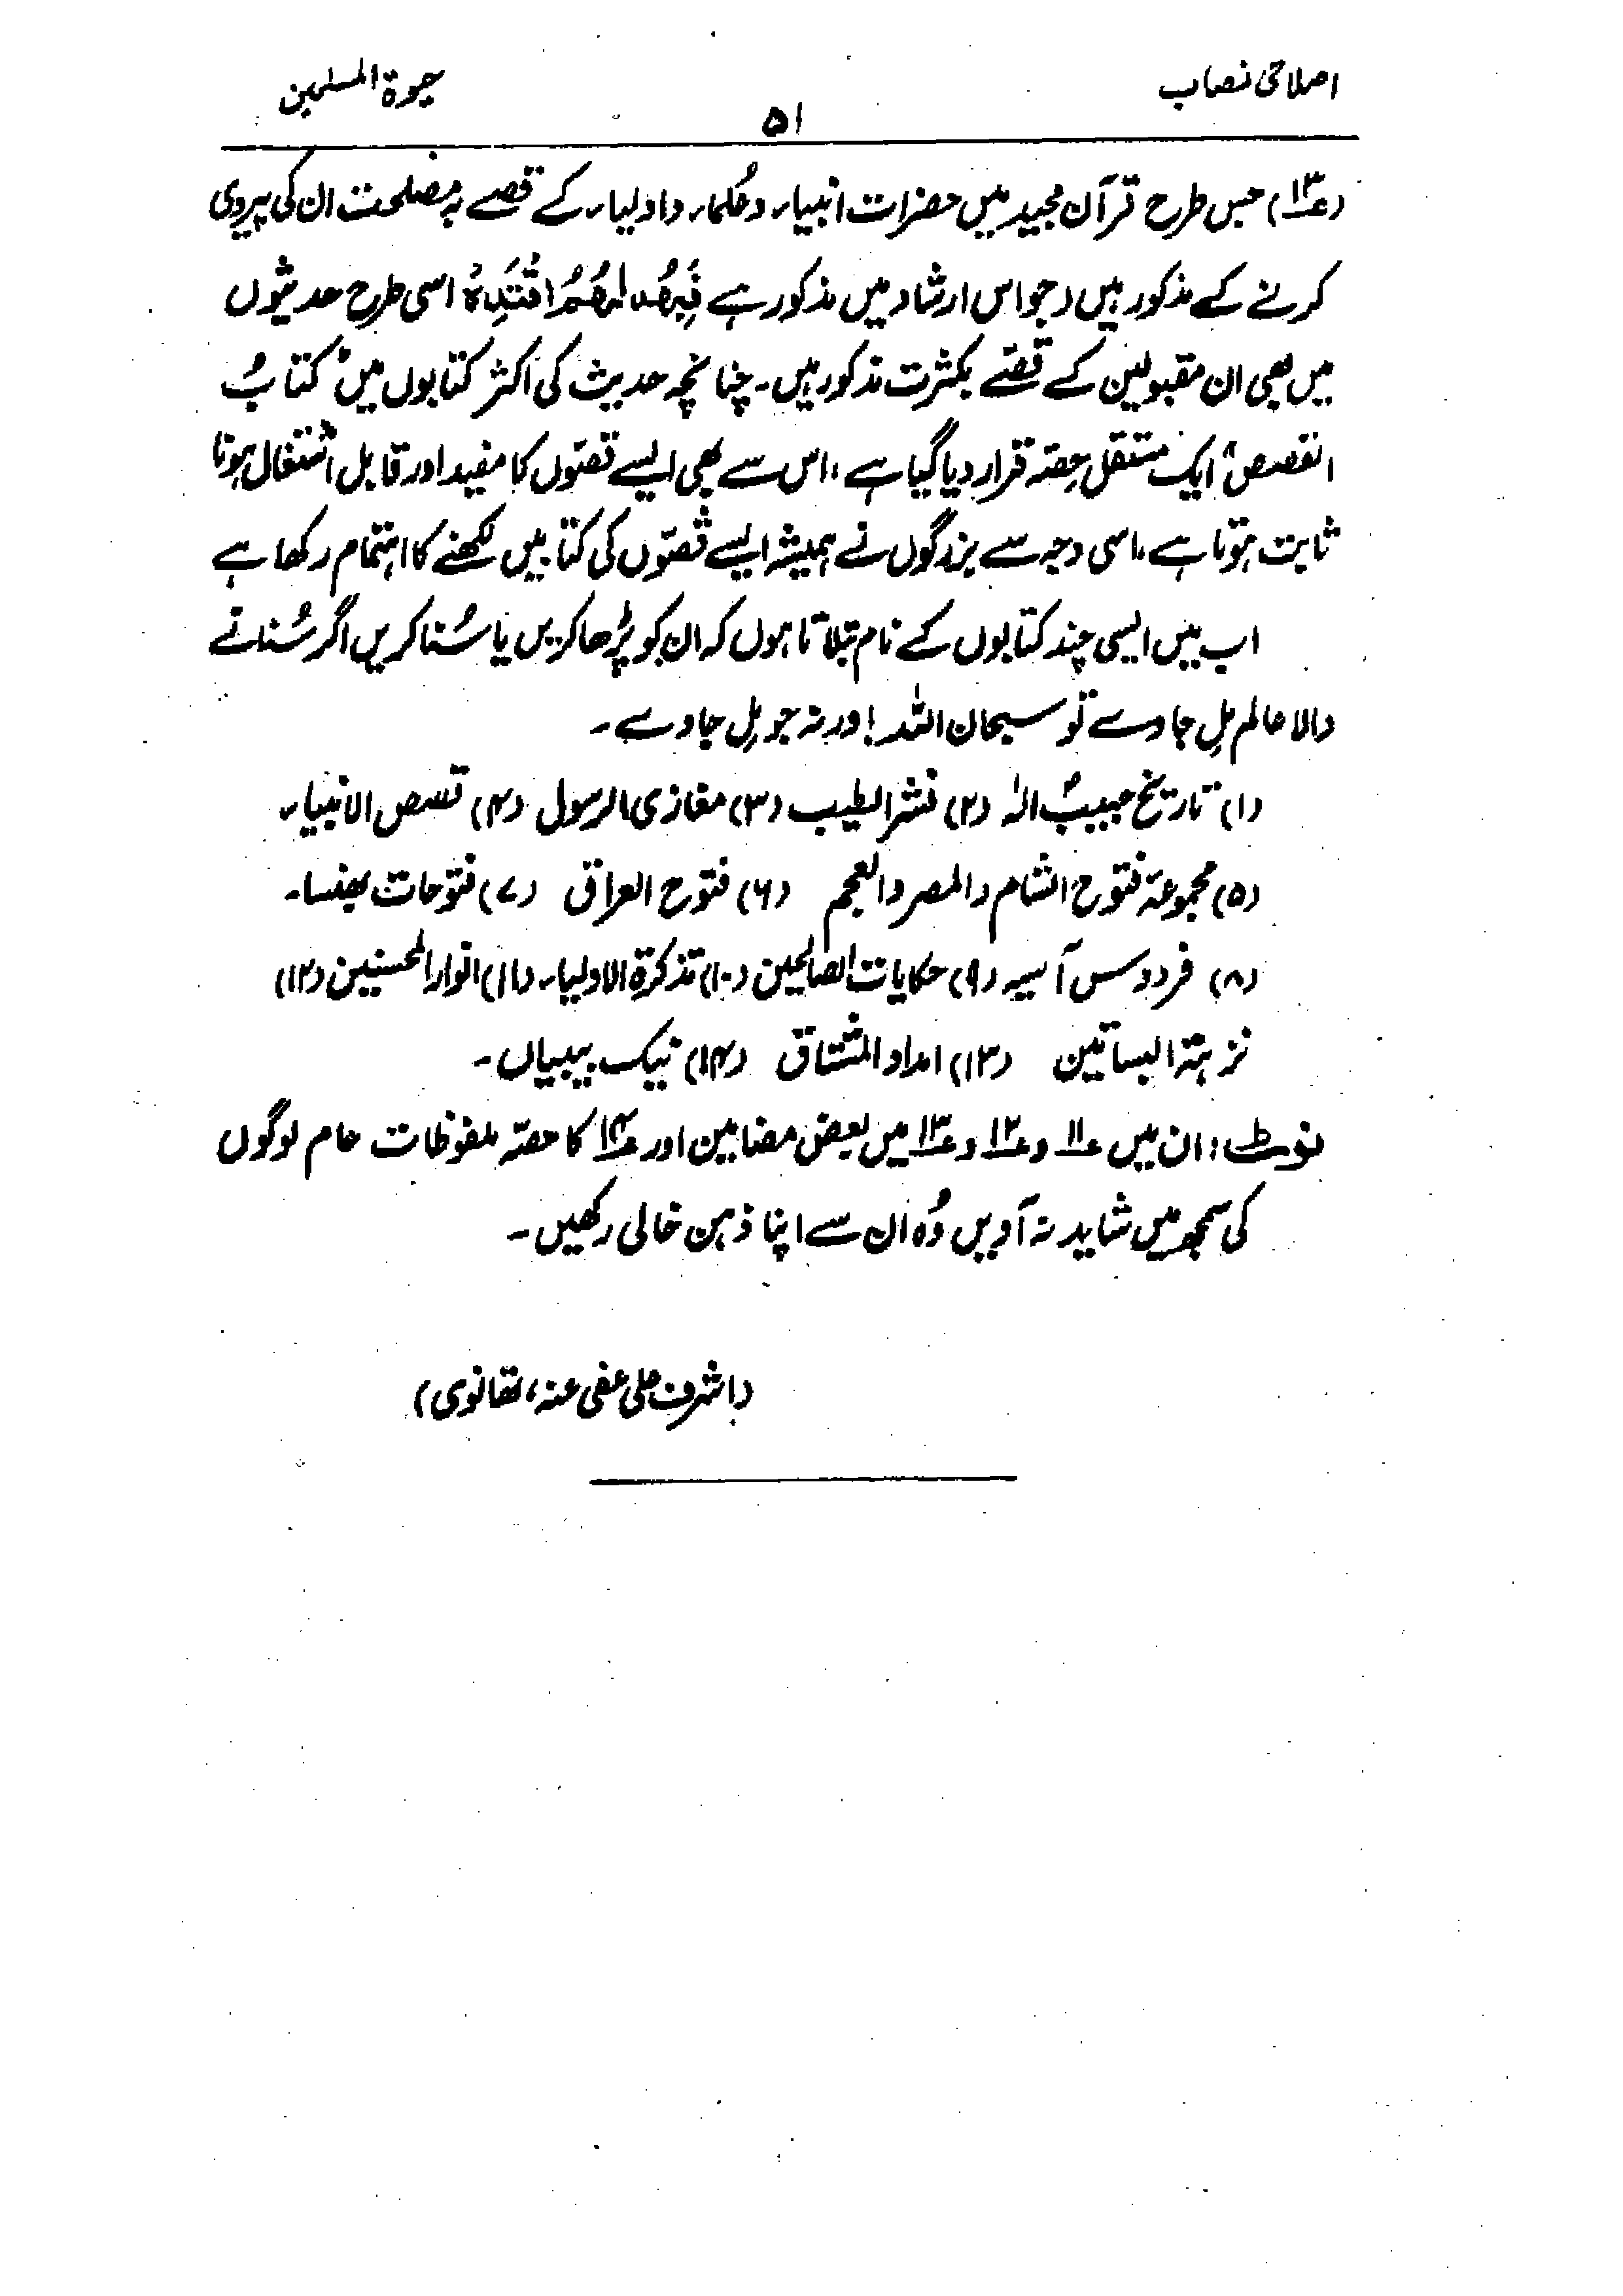 اصلاحی نصاب
حیٰوۃ المسلمین
۵۱
(۱۳؏) جس طرح قرآن مجید میں حضرات انبیاء و حکماء و اولیاء کے قصے بہ مصلحت ان کی پیروی
کرنے کے مذکور ہیں (جو اس ارشاد میں مذکور ہے فَبِهُدٰىهُمُ اقْتَدِهْ اسی طرح حدیثوں
میں بھی ان مقبولین کے قصّے بکثرت مذکور ہیں۔ چنانچہ حدیث کی اکثر کتابوں میں "کتابُ
القصص" ایک مستقل حِصّہ قرار دیا گیا ہے، اس سے بھی ایسے قصّوں کا مفید اور قابل اشتغال ہونا
ثابت ہوتا ہے، اسی وجہ سے بزرگوں نے ہمیشہ ایسے قصّوں کی کتابیں لکھنے کا اہتمام رکھا ہے
اب میں ایسی چند کتابوں کے نام بتلاتا ہوں کہ ان کو پڑھا کریں یا سُنا کریں اگر سُنانے
والا عالم مِل جاوے تو سبحان اللہ! ورنہ جو مِل جاوے۔
(۱) تاریخ حبیبُ الٰہ (۲) نشر الطیب (۳) مغازی الرسول (۴) قصص الانبیاء
(۵) مجموعہ فتوح الشام والمصر والعجم (۶) فتوح العراق (۷) فتوحات بہنسا۔
(۸) فردوس آسیہ (۹) حکایات الصالحین (۱۰) تذکرۃ الاولیاء (۱۱) انوار المحسنین (۱۲)
نزہتہ البساتین (۱۳) امداد المشتاق (۱۴) نیک بیبیاں۔
نوٹ: ان میں ۱۱؏ و ۱۲؏ و ۱۳؏ میں بعض مضامین اور ۱۴؏ کا حصّہ ملفوظات عام لوگوں
کی سمجھ میں شاید نہ آویں وُہ ان سے اپنا ذہن خالی رکھیں۔
(اشرف علی عفی عنہ، تھانوی)